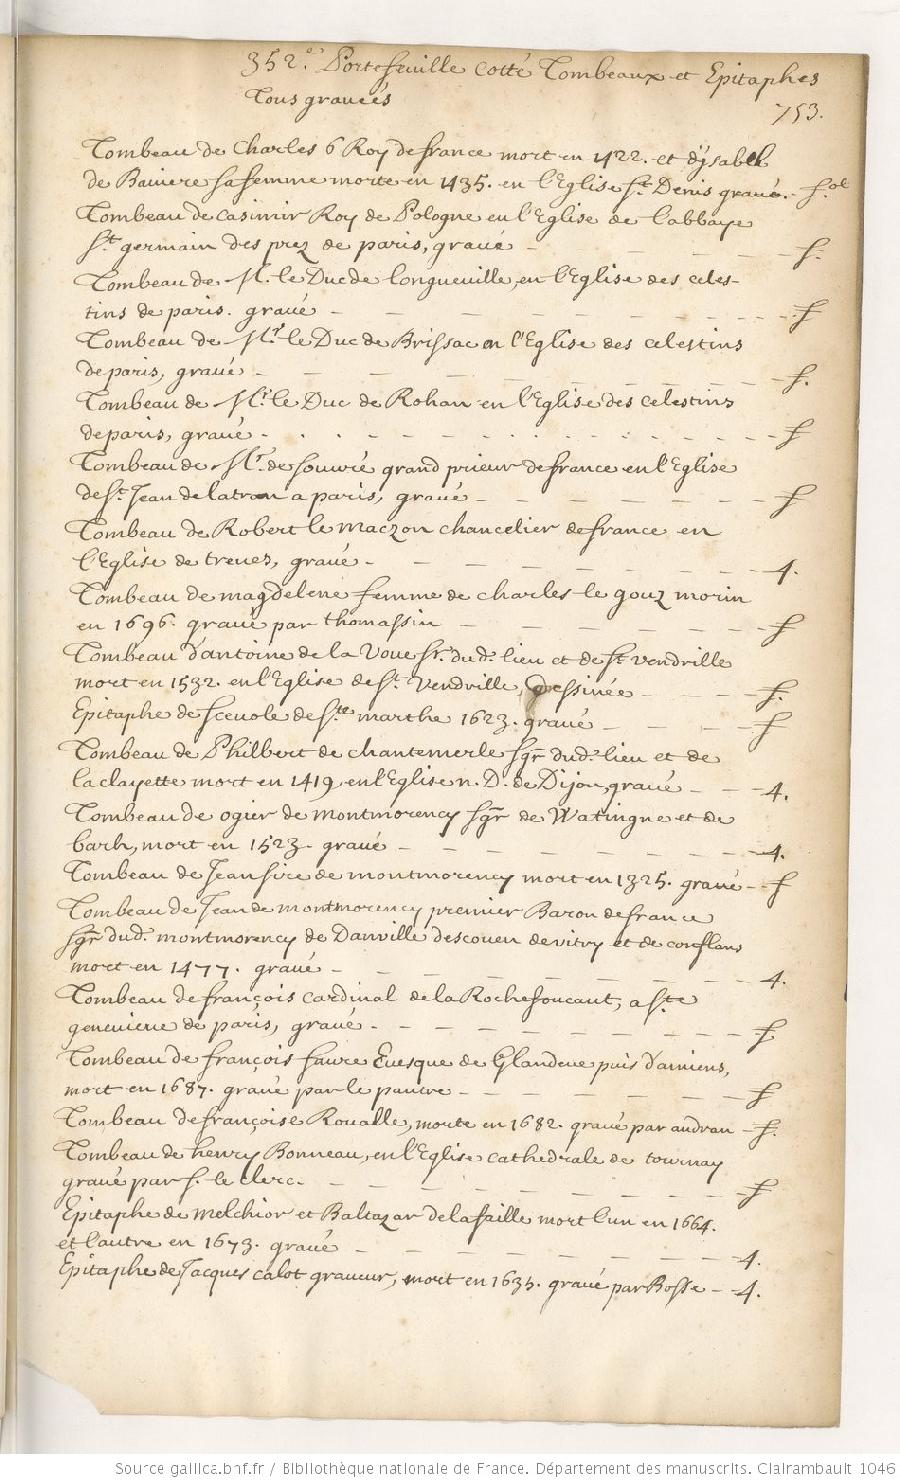 352.e Portefeuille cotté Tombeaux et Epitaphes
Tous gravées
753.
Tombeau de Charles 6 Roy de france mort en 1422. et d'ysabell
de Baviere sa femme morte en 1435. en l'Eglise St. Denis gravé. - f.ol
Tombeau de Casimir Roy de Pologne en l'Eglise de l'abbaye
St. germain des prez de paris, gravé - f.
Tombeau de M. le Duc de longueville, en l'Eglise des celes-
tins de paris. gravé - f
Tombeau de Mr. le Duc de Brissac en l'Eglise des celestins
de paris, gravé - f.
Tombeau de Mr. le Duc de Rohan en l'Eglise des celestins
de paris, gravé - f
Tombeau de Mr. de souvré grand prieur de france en l'Eglise
de St. Jean de latran a paris, gravé - f
Tombeau de Robert le maczon chancelier de france en
l'Eglise de treves, gravé - 4.
Tombeau de magdelene femme de charles le gouz morin
en 1696. gravé par thomassin - f
Tombeau d'antoine de la Voue sr. dud. lieu et de st vendrille
mort en 1532. en l'Eglise de St. Vendrille, Dessinée - f.
Epitaphe de scevole de ste marthe 1623. gravé - f
Tombeau de Philbert de chantemerle sgr dud. lieu et de
la clayette mort en 1419. en l'Eglise n. D. de Dijon, gravé - 4.
Tombeau de ogier de montmorency sgr de Watingne et de
barh, mort en 1523. gravé - 4.
Tombeau de Jean sire de montmorency mort en 1325. gravé - f
Tombeau de Jean de montmorency premier Baron de france
sgr dud. montmorency de Danville descouen de vitry et de conflans
mort en 1477. gravé - 4.
Tombeau de françois cardinal de la Rochefoucaut, a ste
genevieve de paris, gravé - f
Tombeau de françois faure Evesque de Glandeve puis d'amiens,
mort en 1687. gravé par le pautre - f
Tombeau de françoise Roualle, morte en 1682. gravé par audran - f.
Tombeau de henry Bonneau, en l'Eglise cathedrale de tournay
gravé par s. le clerc. - f
Epitaphe de melchior et Baltazar de la faille mort l'un en 1664.
et l'autre en 1673. gravé - 4.
Epitaphe de Jacques calot graveur, mort en 1635. gravé par Bosse - 4.
Source gallica.bnf.fr / Bibliothèque nationale de France. Département des manuscrits. Clairambault 1046